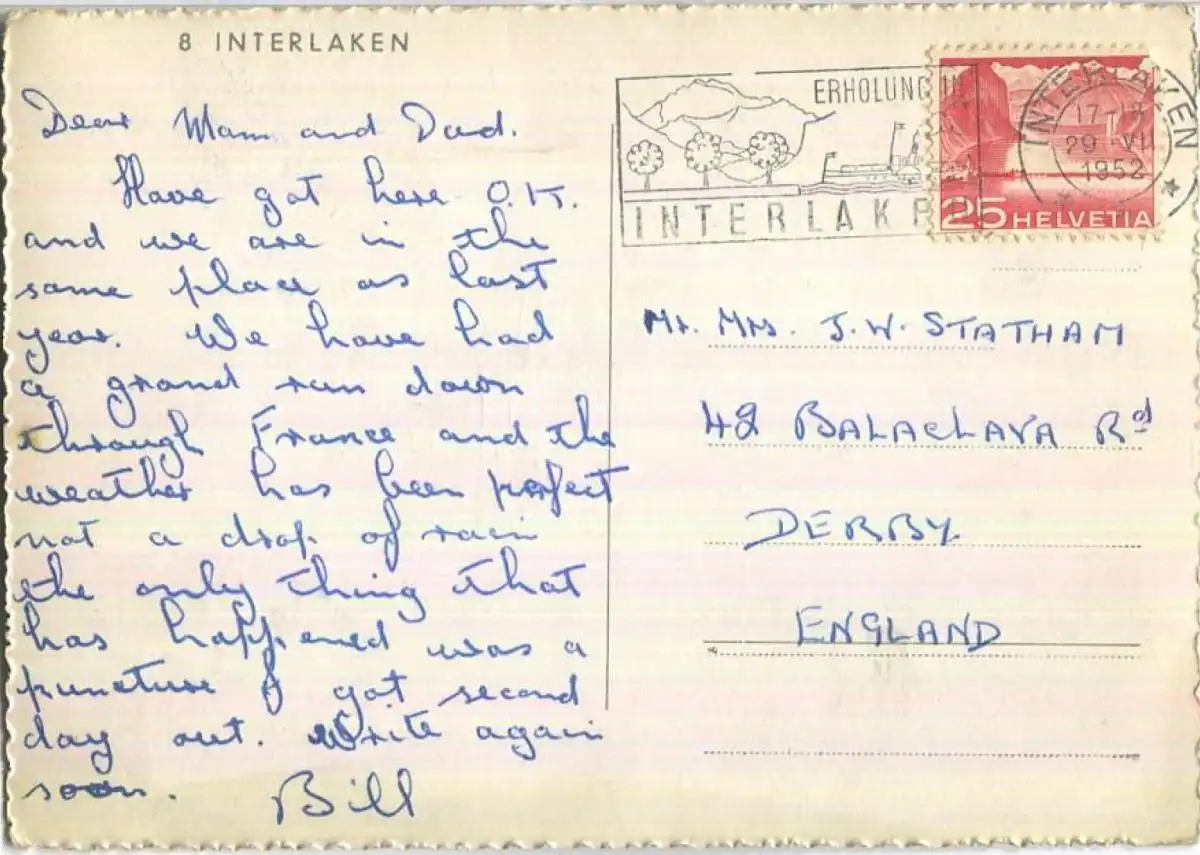 8 INTERLAKEN
Dear Mam and Dad.
Have got here O.K.
and we are in the
same place as last
year. We have had
a grand run down
through France and the
weather has been perfect
not a drop of rain
the only thing that
has happened was a
puncture I got second
day out. Write again
soon. Bill
ERHOLUNG
INTERLAKEN
INTERLAKEN
29 VII
1952
25 HELVETIA
Mr. Mrs. J.W. STATHAM
42 BALACLAVA Rd
DERBY
ENGLAND